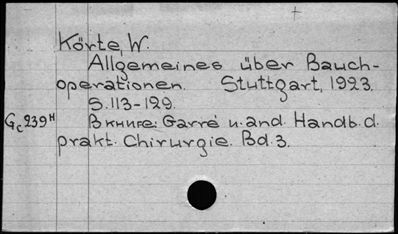 Körte, W.
Allgemeines über Bauch-
operationen. Stuttgart, 1923.
S. 113-129.
Gc 239 H В книге: Garré u. and. Handb. d.
prakt. Chirurgie. Bd. 3.